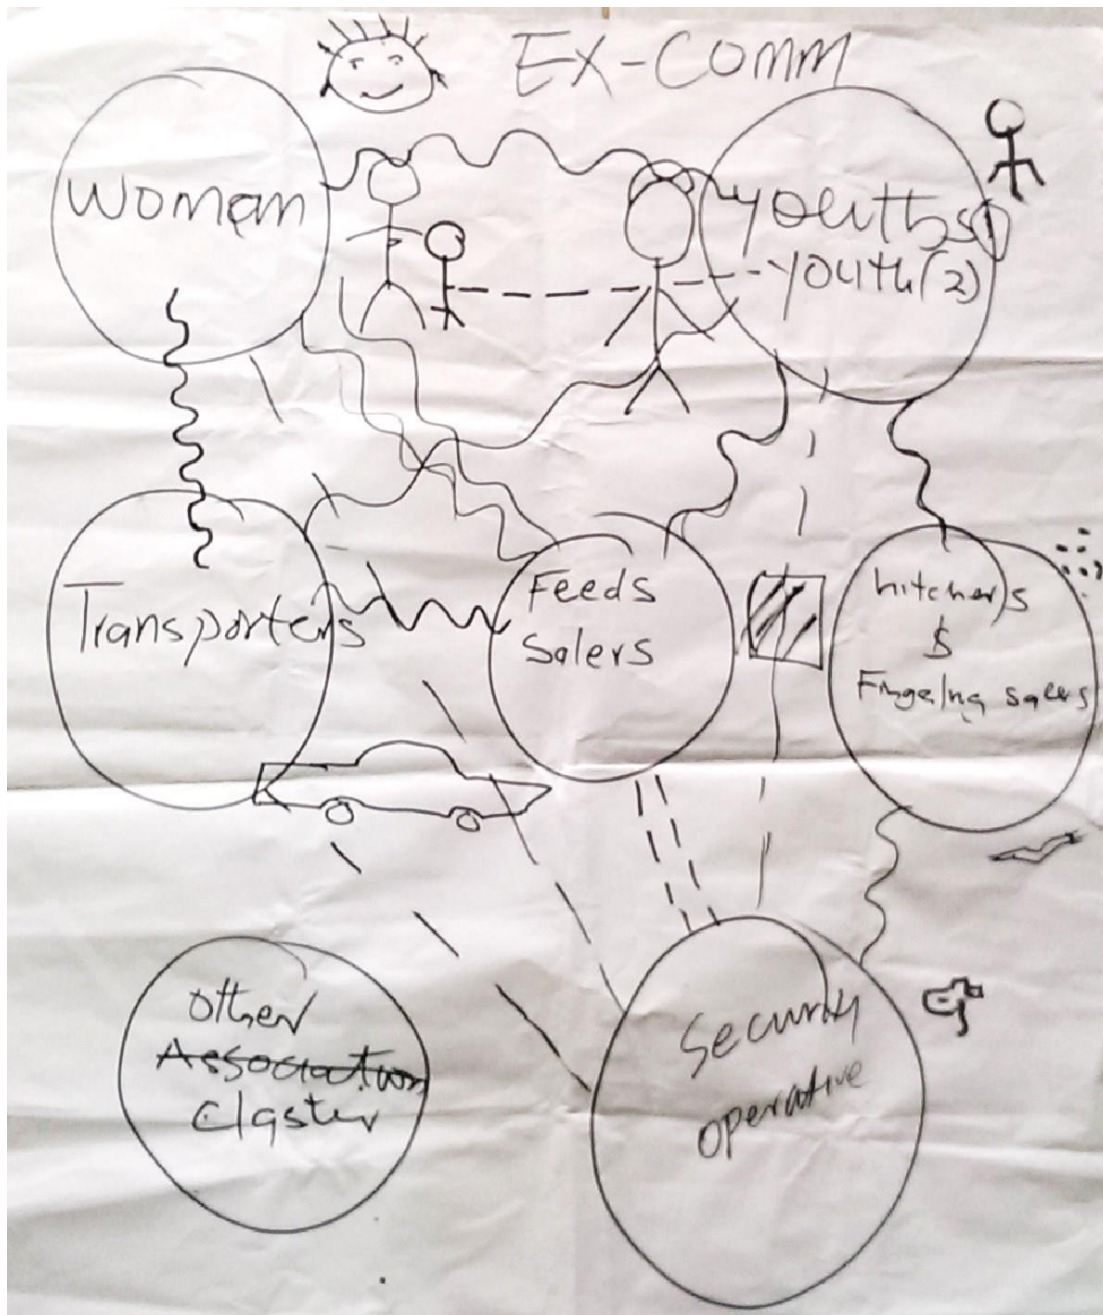 EX-COMM
Woman
youths
youth(2)
Transporters
Feeds
Salers
hitchers
$
Fingelng salers
Other
Association
Claster
Security
operative